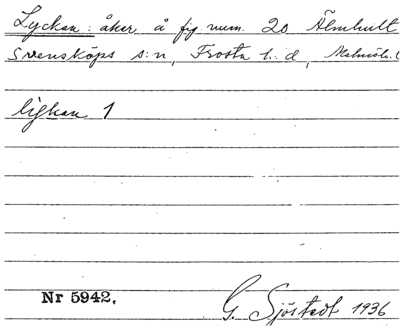 Lyckan: åker å fig num. 20 Älmhult
Svensköps s:n, Frosta h:d, Malmöh.
lykan 1
Nr 5942.
G. Sjöstedt 1936